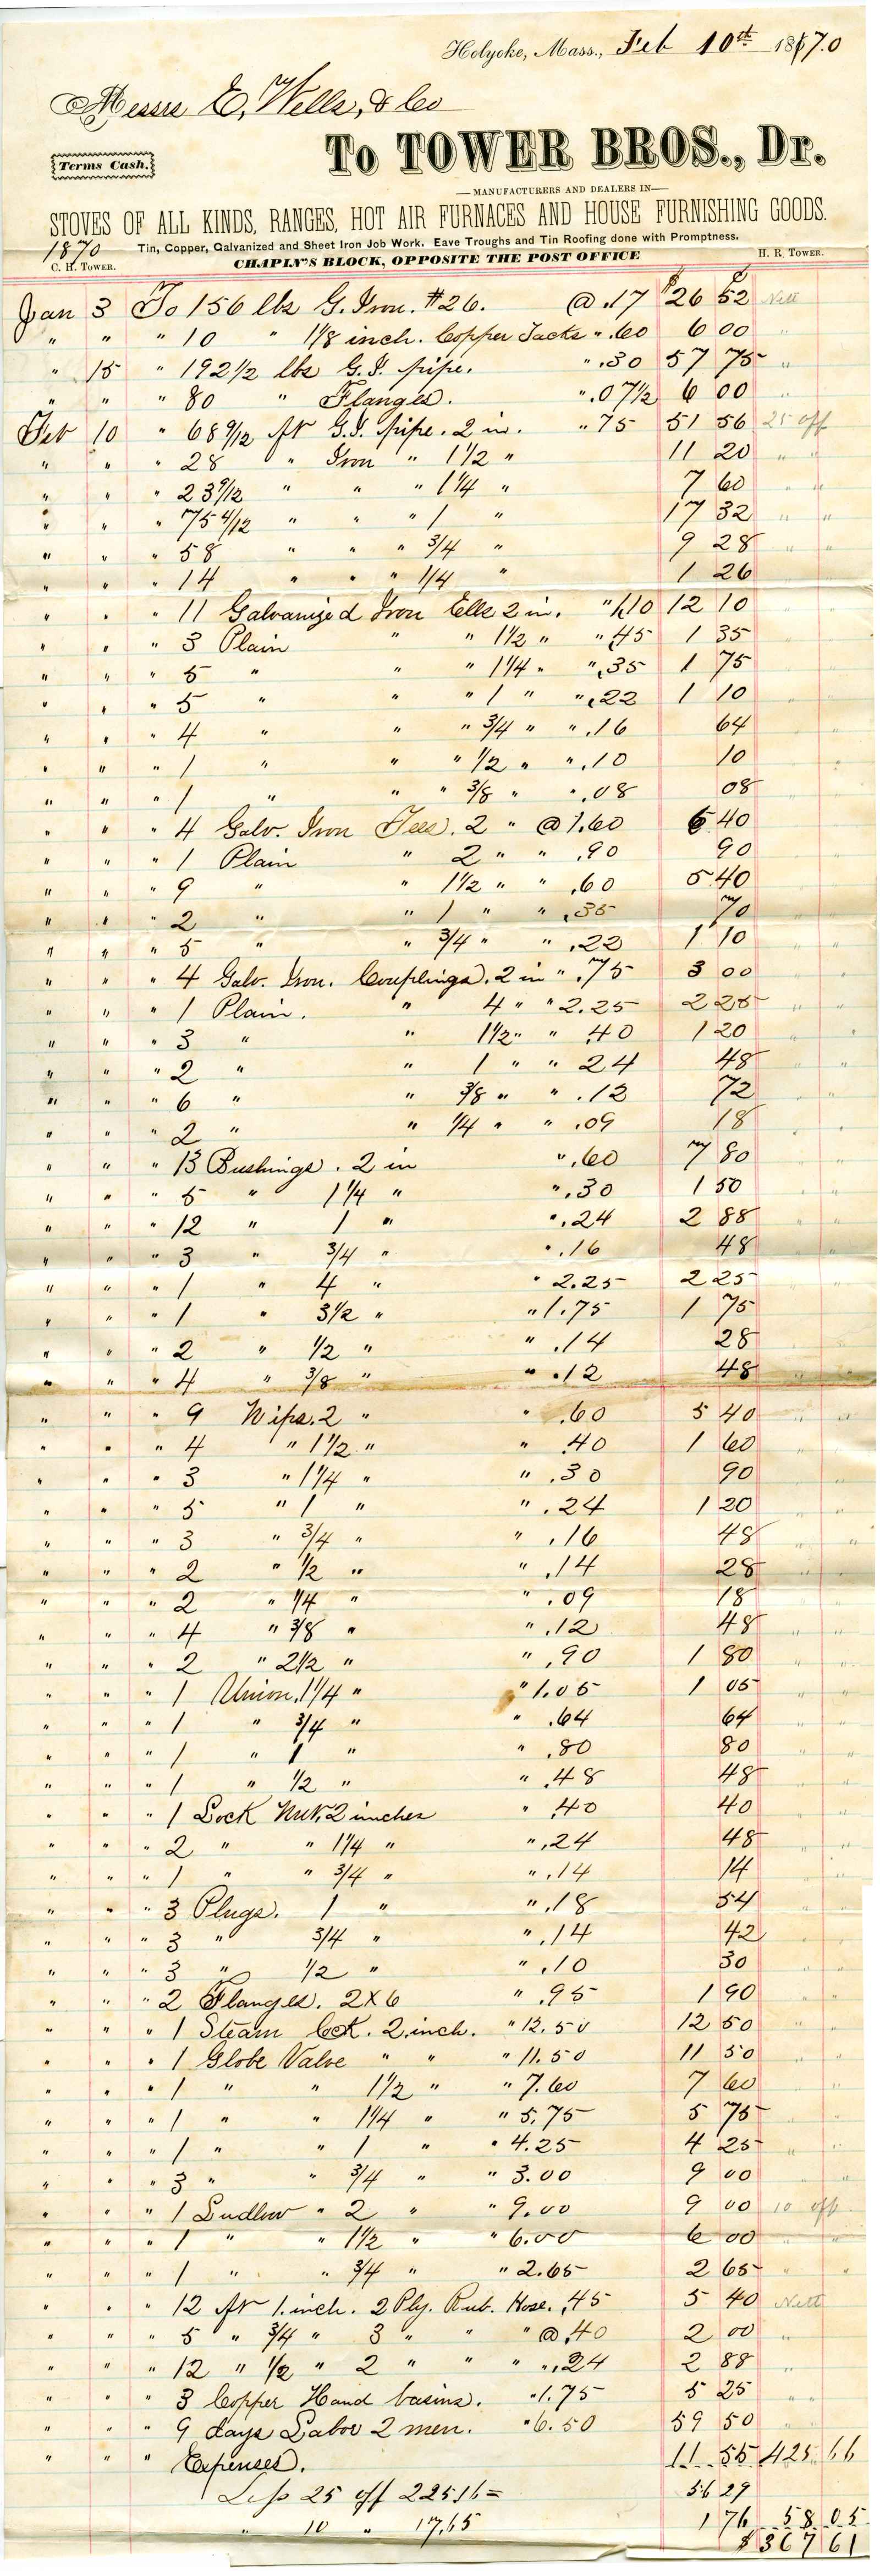 Holyoke, Mass., Feb 10th 1870
Messrs E, Wells, & Co
To TOWER BROS., Dr.
Terms Cash.
— MANUFACTURERS AND DEALERS IN —
STOVES OF ALL KINDS, RANGES, HOT AIR FURNACES AND HOUSE FURNISHING GOODS.
1870 Tin, Copper, Galvanized and Sheet Iron Job Work. Eave Troughs and Tin Roofing done with Promptness.
C. H. TOWER. CHAPIN'S BLOCK, OPPOSITE THE POST OFFICE H. R. TOWER.
Jan 3 To 156 lbs G. Iron. #26. @ .17 $26 52 Nett
" " " 10 " 1/8 inch. Copper Jacks " .60 6 00 "
" 15 " 192 1/2 lbs G.I. pipe. " .30 57 75 "
" " " 80 " Flanges. " .07 1/2 6 00 "
Feb 10 " 68 9/12 ft G.I. pipe. 2 in. " 75 51 56 25 off
" " " 28 " Iron " 1 1/2 " 11 20 " "
" " " 23 9/12 " " " 1 1/4 " 7 60 " "
" " " 75 4/12 " " " 1 " 17 32 " "
" " " 58 " " " 3/4 " 9 28 " "
" " " 14 " " " 1/4 " 1 26
" " " 11 Galvanized Iron Ells 2 in. " 1.10 12 10
" " " 3 Plain " " 1 1/2 " " .45 1 35
" " " 5 " " " 1 1/4 " " .35 1 75
" " " 5 " " " 1 " " .22 1 10
" " " 4 " " " 3/4 " " .16 64
" " " 1 " " " 1/2 " " .10 10
" " " 1 " " " 3/8 " " .08 08
" " " 4 Galv. Iron Tees. 2 " @ 1.60 6 40
" " " 1 Plain " 2 " " .90 90
" " " 9 " " 1 1/2 " " .60 5 40
" " " 2 " " 1 " " .35 70
" " " 5 " " 3/4 " " .22 1 10
" " " 4 Galv. Iron. Couplings. 2 in " .75 3 00
" " " 1 Plain. " 4 " " 2.25 2 25
" " " 3 " " 1 1/2 " " .40 1 20
" " " 2 " " 1 " " 24 48
" " " 6 " " 3/8 " " .12 72
" " " 2 " " 1/4 " " .09 18
" " " 13 Bushings. 2 in " .60 7 80
" " " 5 " 1 1/4 " " .30 1 50
" " " 12 " 1 " " .24 2 88
" " " 3 " 3/4 " " .16 48
" " " 1 " 4 " " 2.25 2 25
" " " 1 " 3 1/2 " " 1.75 1 75
" " " 2 " 1/2 " " .14 28
" " " 4 " 3/8 " " .12 48
" " " 9 Nips. 2 " " .60 5 40
" " " 4 " 1 1/2 " " .40 1 60
" " " 3 " 1 1/4 " " .30 90
" " " 5 " 1 " " .24 1 20
" " " 3 " 3/4 " " .16 48
" " " 2 " 1/2 " " .14 28
" " " 2 " 1/4 " " .09 18
" " " 4 " 3/8 " " .12 48
" " " 2 " 2 1/2 " " .90 1 80
" " " 1 Union, 1 1/4 " " 1.05 1 05
" " " 1 " 3/4 " " .64 64
" " " 1 " 1 " " .80 80
" " " 1 " 1/2 " " .48 48
" " " 1 Lock Nut, 2 inches " .40 40
" " " 2 " " 1 1/4 " " .24 48
" " " 1 " " 3/4 " " .14 14
" " " 3 Plugs. 1 " " .18 54
" " " 3 " 3/4 " " .14 42
" " " 3 " 1/2 " " .10 30
" " " 2 Flanges. 2 X 6 " .95 1 90
" " " 1 Steam Cck. 2 inch. " 12.50 12 50
" " " 1 Globe Valve " " " 11.50 11 50
" " " 1 " " 1 1/2 " " 7.60 7 60
" " " 1 " " 1 1/4 " " 5.75 5 75
" " " 1 " " 1 " " 4.25 4 25
" " " 3 " " 3/4 " " 3.00 9 00
" " " 1 Ludlow " 2 " " 9.00 9 00 10 off
" " " 1 " " 1 1/2 " " 6.00 6 00
" " " 1 " " 3/4 " " 2.65 2 65 " "
" " " 12 ft 1 inch. 2 Ply. Rub. Hose. .45 5 40 Nett
" " " 5 " 3/4 " 3 " " " @ .40 2 00 "
" " " 12 " 1/2 " 2 " " " " .24 2 88 "
" " " 3 Copper Hand basins. " 1.75 5 25
" " " 9 days Labor 2 men. " 6.50 59 50
" " " Expenses. 11 55 425 66
Less 25 off 225.16 = 56 29
" 10 " 17.65 1 76 58 05
$367 61